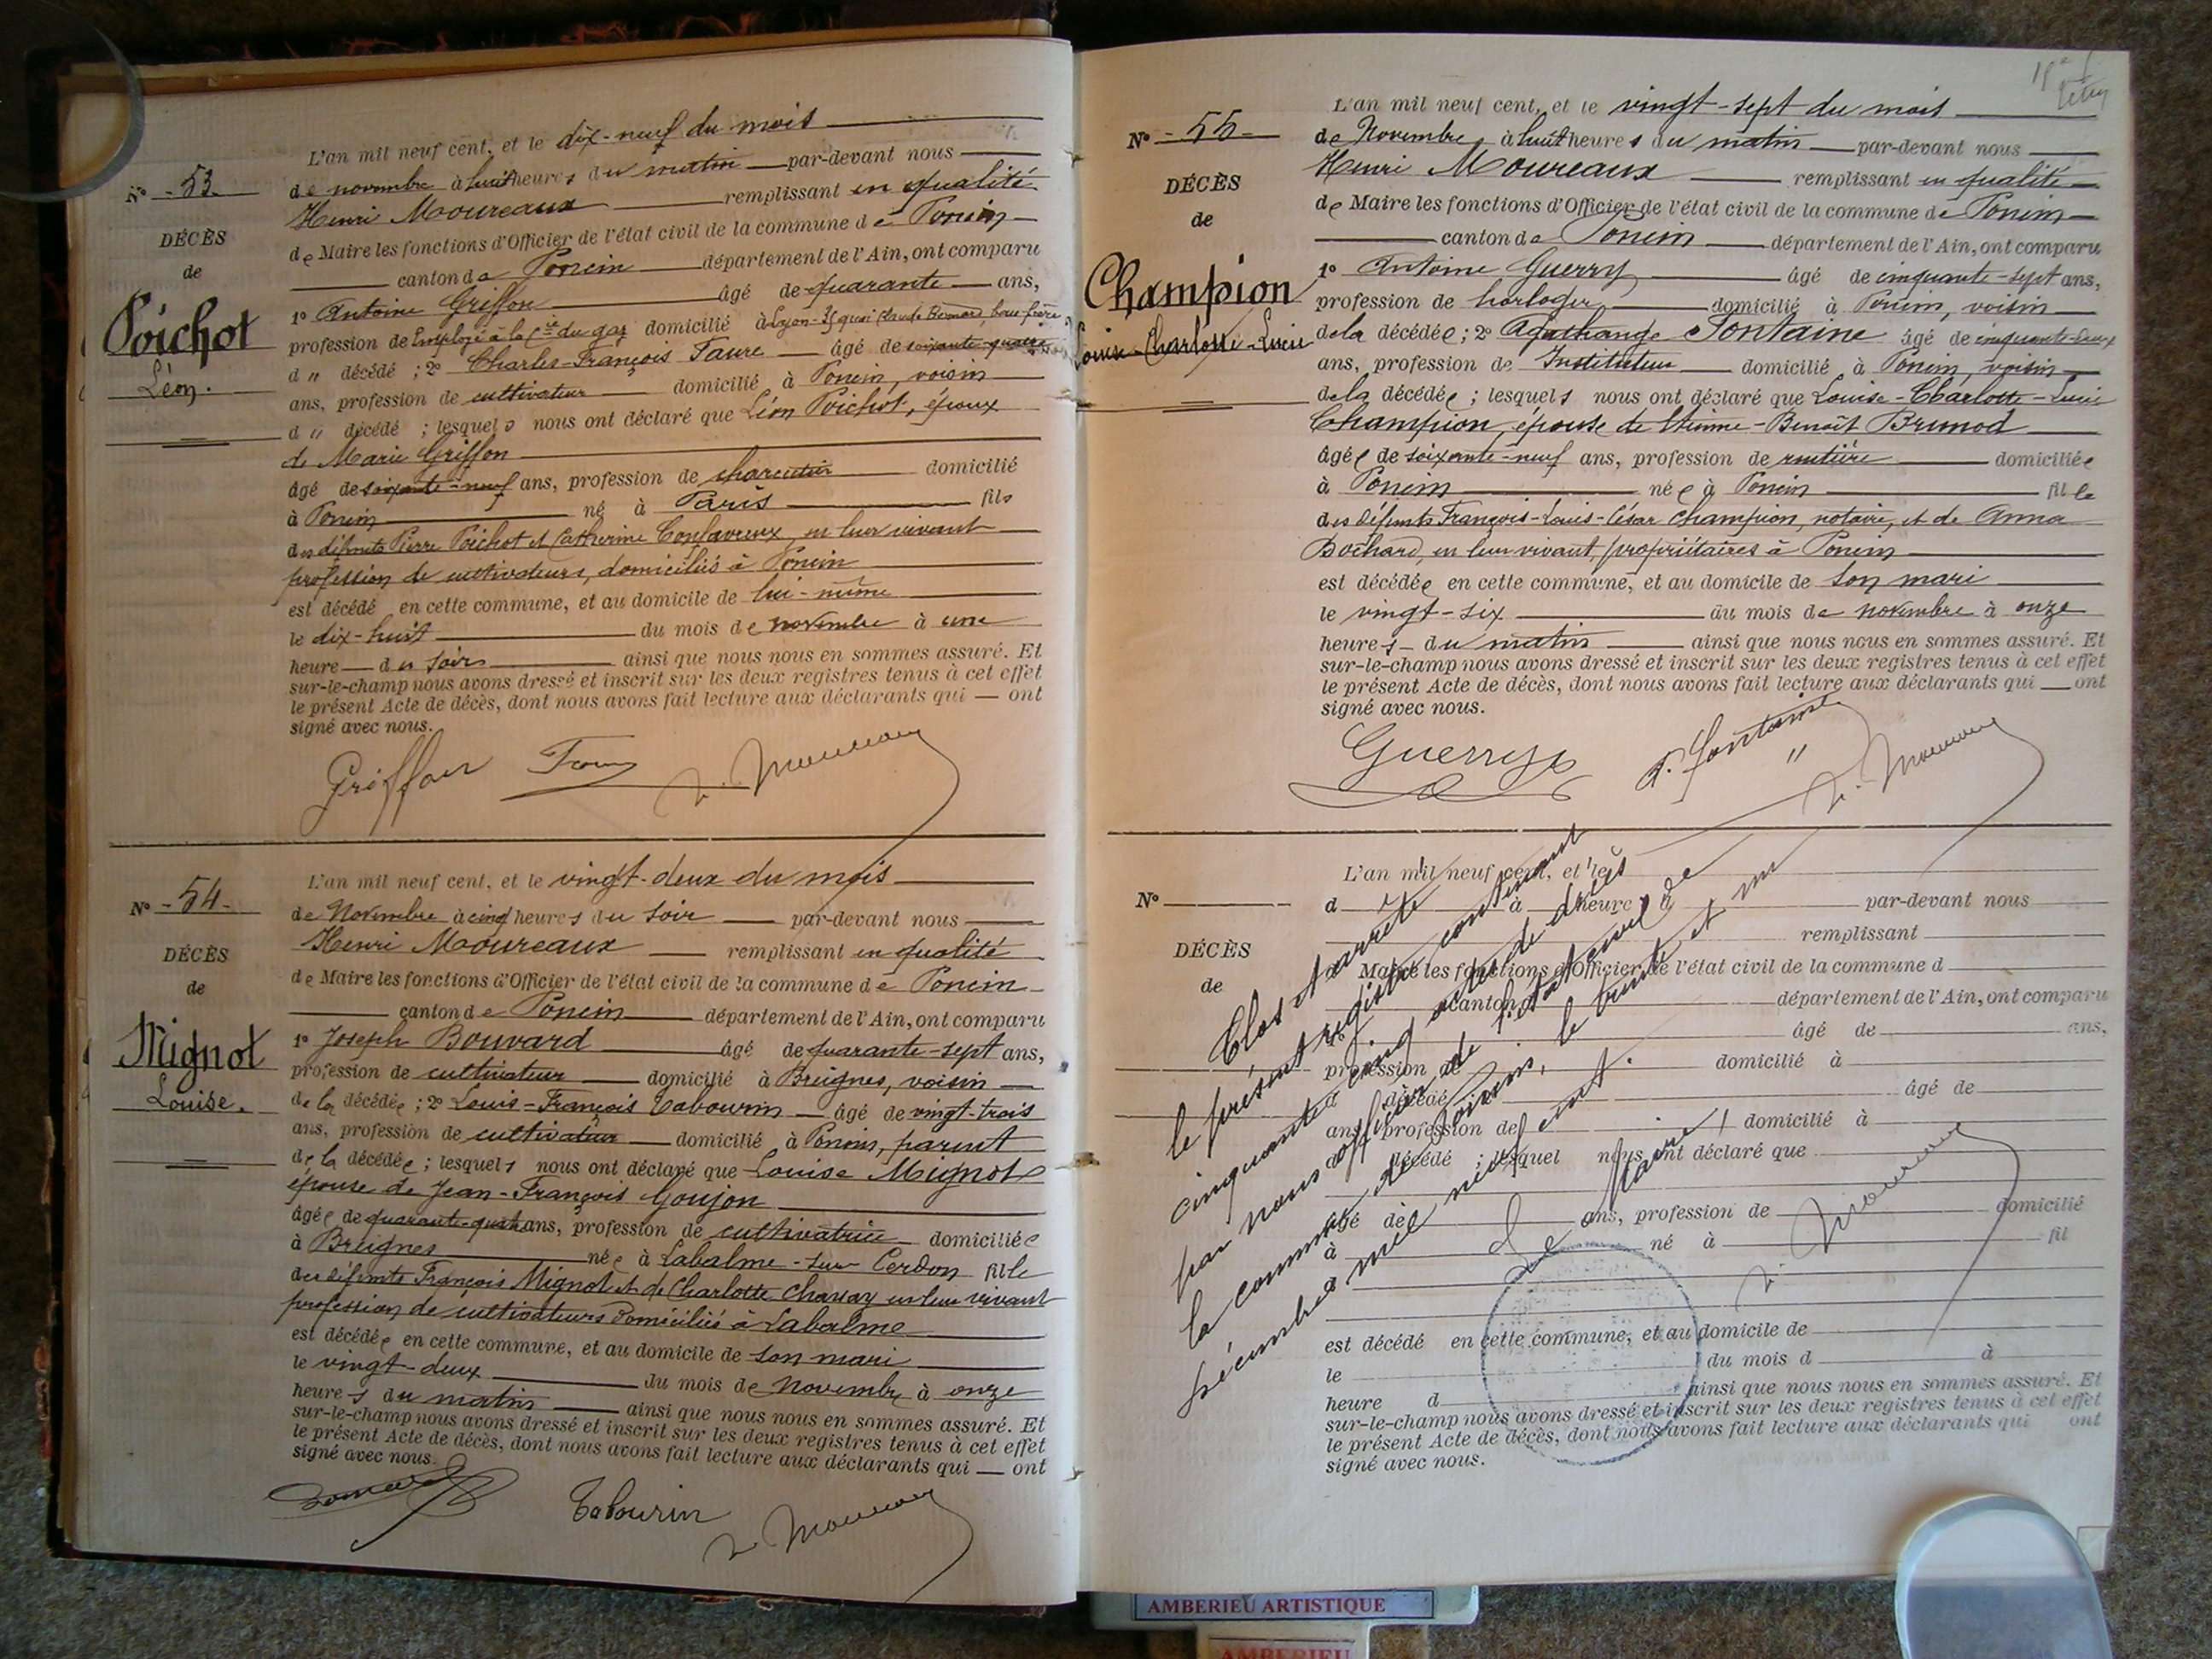 N° - 53.
DÉCÈS
de
Poichot
Léon.
L'an mil neuf cent, et le dix-neuf du mois
de novembre à huit heures du matin par-devant nous
Henri Moureaux remplissant en qualité
de Maire les fonctions d'Officier de l'état civil de la commune de Poncin
canton de Poncin département de l'Ain, ont comparu
1° Antoine Griffon âgé de quarante ans,
profession de Employé à la Cie du gaz domicilié à Lyon quai Claude Bernard, beau-frère
d u décédé ; 2° Charles-François Faure âgé de soixante-quatre
ans, profession de cultivateur domicilié à Poncin, voisin
d u décédé ; lesquels nous ont déclaré que Léon Poichot, époux
de Marie Griffon
âgé de soixante-neuf ans, profession de charcutier domicilié
à Poncin né à Paris fils
des défunts Pierre Poichot et Catherine Confavreux, en leur vivant
profession de cultivateurs, domiciliés à Poncin
est décédé en cette commune, et au domicile de lui-même
le dix-huit du mois de novembre à une
heure du soir ainsi que nous nous en sommes assuré. Et
sur-le-champ nous avons dressé et inscrit sur les deux registres tenus à cet effet
le présent Acte de décès, dont nous avons fait lecture aux déclarants qui — ont
signé avec nous.
Griffon Faure H. Moureaux
N° - 54 -
DÉCÈS
de
Mignot
Louise.
L'an mil neuf cent, et le vingt-deux du mois
de Novembre à cinq heures du soir par-devant nous
Henri Moureaux remplissant en qualité
de Maire les fonctions d'Officier de l'état civil de la commune de Poncin
canton de Poncin département de l'Ain, ont comparu
1° Joseph Bouvard âgé de quarante-sept ans,
profession de cultivateur domicilié à Breignes, voisin
de la décédée ; 2° Louis-François Tabourin âgé de vingt-trois
ans, profession de cultivateur domicilié à Poncin, parent
de la décédée ; lesquels nous ont déclaré que Louise Mignot
épouse de Jean-François Goujon
âgée de quarante-quatre ans, profession de cultivatrice domiciliée
à Breignes née à Labalme-sur-Cerdon fille
des défunts François Mignot et de Charlotte Chavay en leur vivant
profession de cultivateurs domiciliés à Labalme
est décédée en cette commune, et au domicile de son mari
le vingt-deux du mois de Novembre à onze
heures du matin ainsi que nous nous en sommes assuré. Et
sur-le-champ nous avons dressé et inscrit sur les deux registres tenus à cet effet
le présent Acte de décès, dont nous avons fait lecture aux déclarants qui — ont
signé avec nous.
Bouvard Tabourin H. Moureaux
N° - 55 -
DÉCÈS
de
Champion
Louise-Charlotte-Lucie
L'an mil neuf cent, et le vingt-sept du mois
de Novembre à huit heures du matin par-devant nous
Henri Moureaux remplissant en qualité
de Maire les fonctions d'Officier de l'état civil de la commune de Poncin
canton de Poncin département de l'Ain, ont comparu
1° Antoine Guerry âgé de cinquante-sept ans,
profession de horloger domicilié à Poncin, voisin
de la décédée ; 2° Agathange Fontaine âgé de cinquante-deux
ans, profession de Instituteur domicilié à Poncin, voisin
de la décédée ; lesquels nous ont déclaré que Louise-Charlotte-Lucie
Champion, épouse de Etienne-Benoît Brunod
âgée de soixante-neuf ans, profession de rentière domiciliée
à Poncin née à Poncin fille
des défunts François-Louis-César Champion, notaire, et de Anna
Bochard, en leur vivant, propriétaires à Poncin
est décédée en cette commune, et au domicile de son mari
le vingt-six du mois de novembre à onze
heures du matin ainsi que nous nous en sommes assuré. Et
sur-le-champ nous avons dressé et inscrit sur les deux registres tenus à cet effet
le présent Acte de décès, dont nous avons fait lecture aux déclarants qui — ont
signé avec nous.
Guerry A. Fontaine H. Moureaux
N°
DÉCÈS
de
L'an mil neuf cent, et le
d à heure d par-devant nous
remplissant
Maire les fonctions d'Officier de l'état civil de la commune d
canton département de l'Ain, ont comparu
âgé de ans,
profession de domicilié à
décédé âgé de
ans, profession de domicilié à
d décédé ; lesquel nous ont déclaré que
âgé de ans, profession de domicilié
à né à fil
est décédé en cette commune, et au domicile de
le du mois d à
heure d ainsi que nous nous en sommes assuré. Et
sur-le-champ nous avons dressé et inscrit sur les deux registres tenus à cet effet
le présent Acte de décès, dont nous avons fait lecture aux déclarants qui ont
signé avec nous.
Clos et arrêté
le présent registre contenant
cinquante cinq actes de décès
par nous officier de l'état civil de
la commune de Poncin, le trente et un
décembre mil neuf cent.
Le Maire
H. Moureaux
AMBERIEU ARTISTIQUE
AMBERIEU